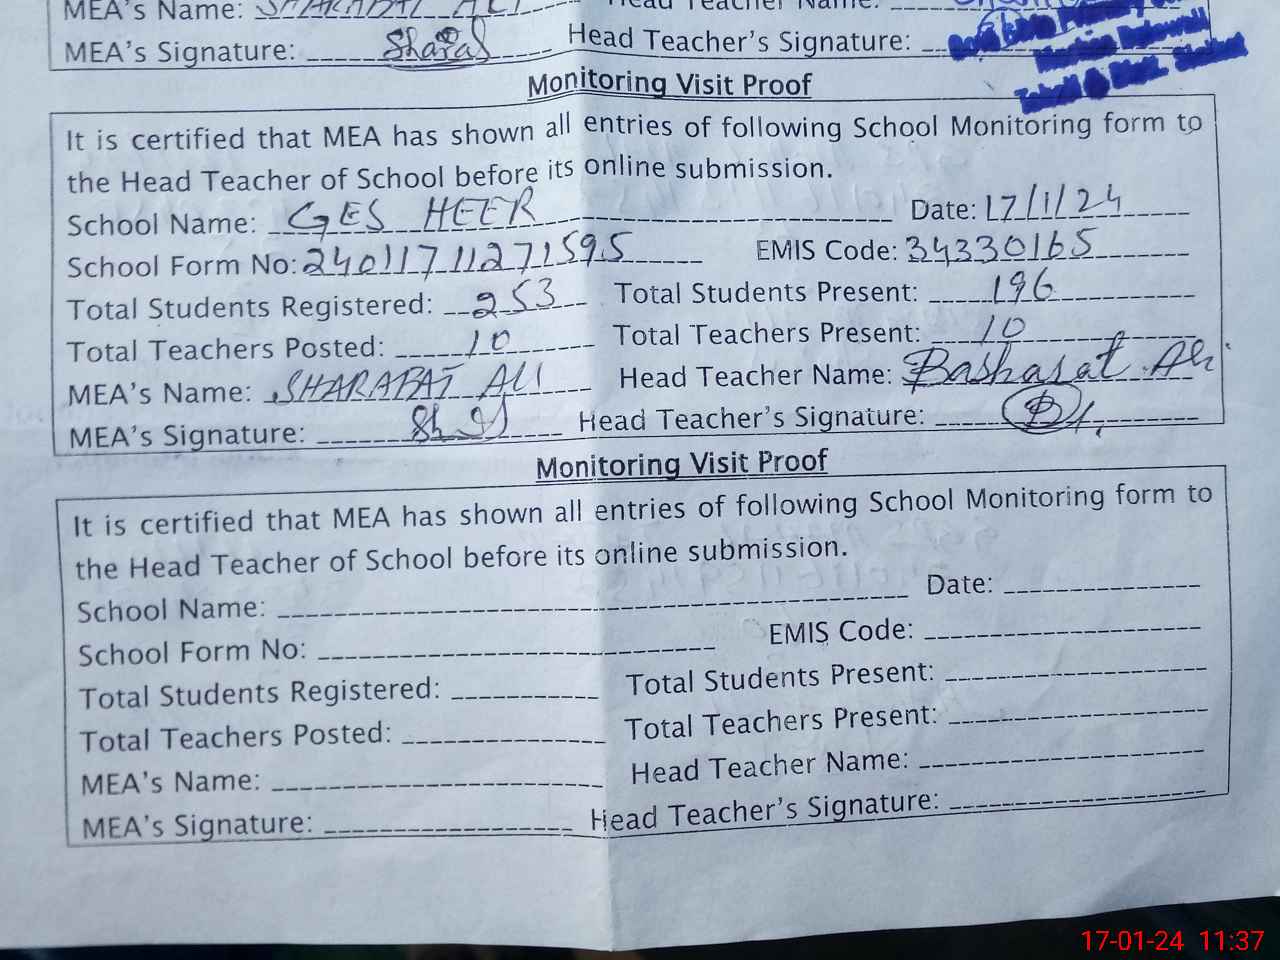 MEA's Name: SHARAFAT ALI Head Teacher Name:
MEA's Signature: Sharaf Head Teacher's Signature:
Monitoring Visit Proof
It is certified that MEA has shown all entries of following School Monitoring form to
the Head Teacher of School before its online submission.
School Name: GES HEER Date: 17/1/24
School Form No: 24011711271595 EMIS Code: 34330165
Total Students Registered: 253 Total Students Present: 196
Total Teachers Posted: 10 Total Teachers Present: 10
MEA's Name: SHARAFAT ALI Head Teacher Name: Basharat Ali
MEA's Signature: Head Teacher's Signature:
Monitoring Visit Proof
It is certified that MEA has shown all entries of following School Monitoring form to
the Head Teacher of School before its online submission.
School Name: Date:
School Form No: EMIS Code:
Total Students Registered: Total Students Present:
Total Teachers Posted: Total Teachers Present:
MEA's Name: Head Teacher Name:
MEA's Signature: Head Teacher's Signature:
17-01-24 11:37